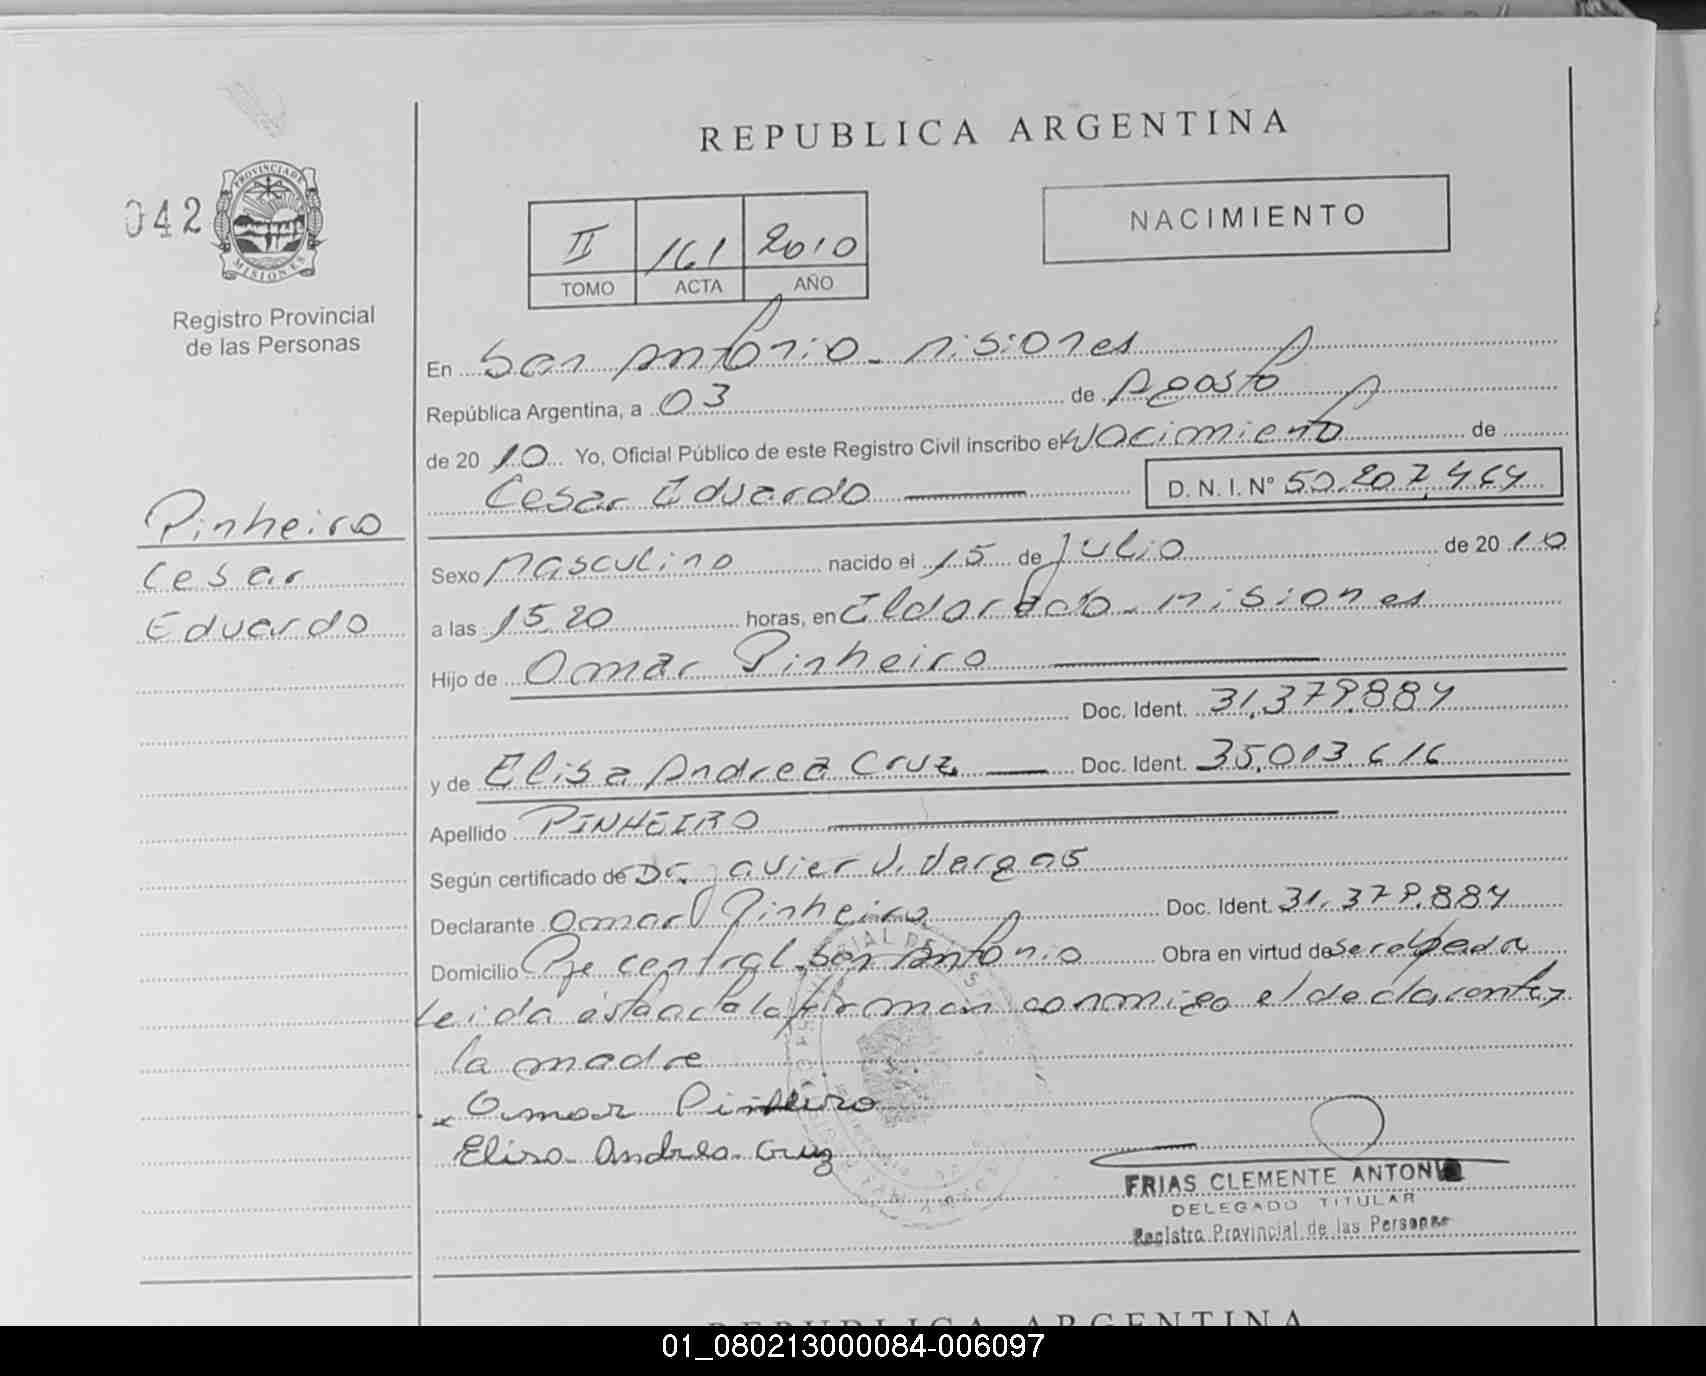 REPUBLICA ARGENTINA
042
PROVINCIA DE MISIONES
Registro Provincial
de las Personas
II 161 2010
TOMO ACTA AÑO
NACIMIENTO
En San Antonio - Misiones
República Argentina, a 03 de Agosto
de 2010 Yo, Oficial Público de este Registro Civil inscribo el Nacimiento de
Cesar Eduardo D. N. I. Nº 50.207.464
Pinheiro
Cesar
Eduardo
Sexo Masculino nacido el 15 de Julio de 2010
a las 15.20 horas, en Eldorado - Misiones
Hijo de Omar Pinheiro
Doc. Ident. 31.379.884
y de Elisa Andrea Cruz Doc. Ident. 35.013.616
Apellido PINHEIRO
Según certificado de Dr. Javier V. Vargas
Declarante Omar Pinheiro Doc. Ident. 31.379.884
Domicilio Pje central San Antonio Obra en virtud de
Leida esta acta la firman conmigo el declarante y
la madre
Omar Pinheiro
Elisa Andrea Cruz
FRIAS CLEMENTE ANTONIO
DELEGADO TITULAR
Registro Provincial de las Personas
REPUBLICA ARGENTINA
01_080213000084-006097